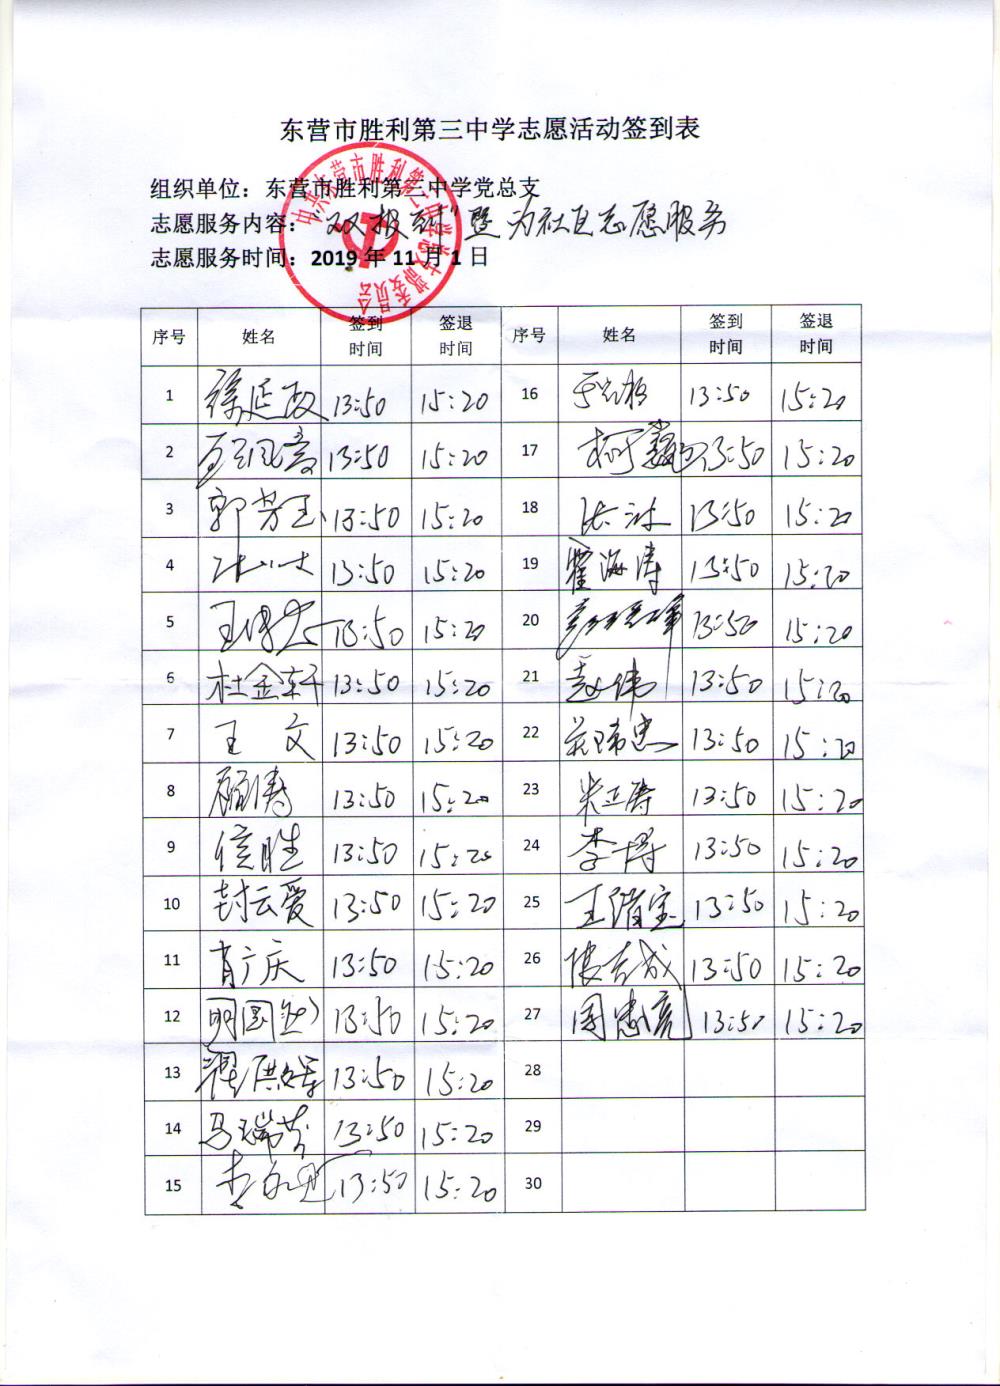 东营市胜利第三中学志愿活动签到表
组织单位：东营市胜利第三中学党总支
志愿服务内容：“双报到”暨为社区志愿服务
志愿服务时间：2019年11月1日
序号 姓名 签到时间 签退时间 序号 姓名 签到时间 签退时间
1 徐延政 13:50 15:20 16 13:50 15:20
2 13:50 15:20 17 柯巍 13:50 15:20
3 郭芳玉 13:50 15:20 18 13:50 15:20
4 13:50 15:20 19 霍海涛 13:50 15:20
5 13:50 15:20 20 13:50 15:20
6 杜金轩 13:50 15:20 21 赵伟 13:50 15:20
7 王文 13:50 15:20 22 13:50 15:20
8 顾涛 13:50 15:20 23 13:50 15:20
9 侯胜 13:50 15:20 24 李博 13:50 15:20
10 封云爱 13:50 15:20 25 王绪宝 13:50 15:20
11 肖广庆 13:50 15:20 26 13:50 15:20
12 13:50 15:20 27 周忠亮 13:50 15:20
13 13:50 15:20 28
14 马瑞芳 13:50 15:20 29
15 13:50 15:20 30